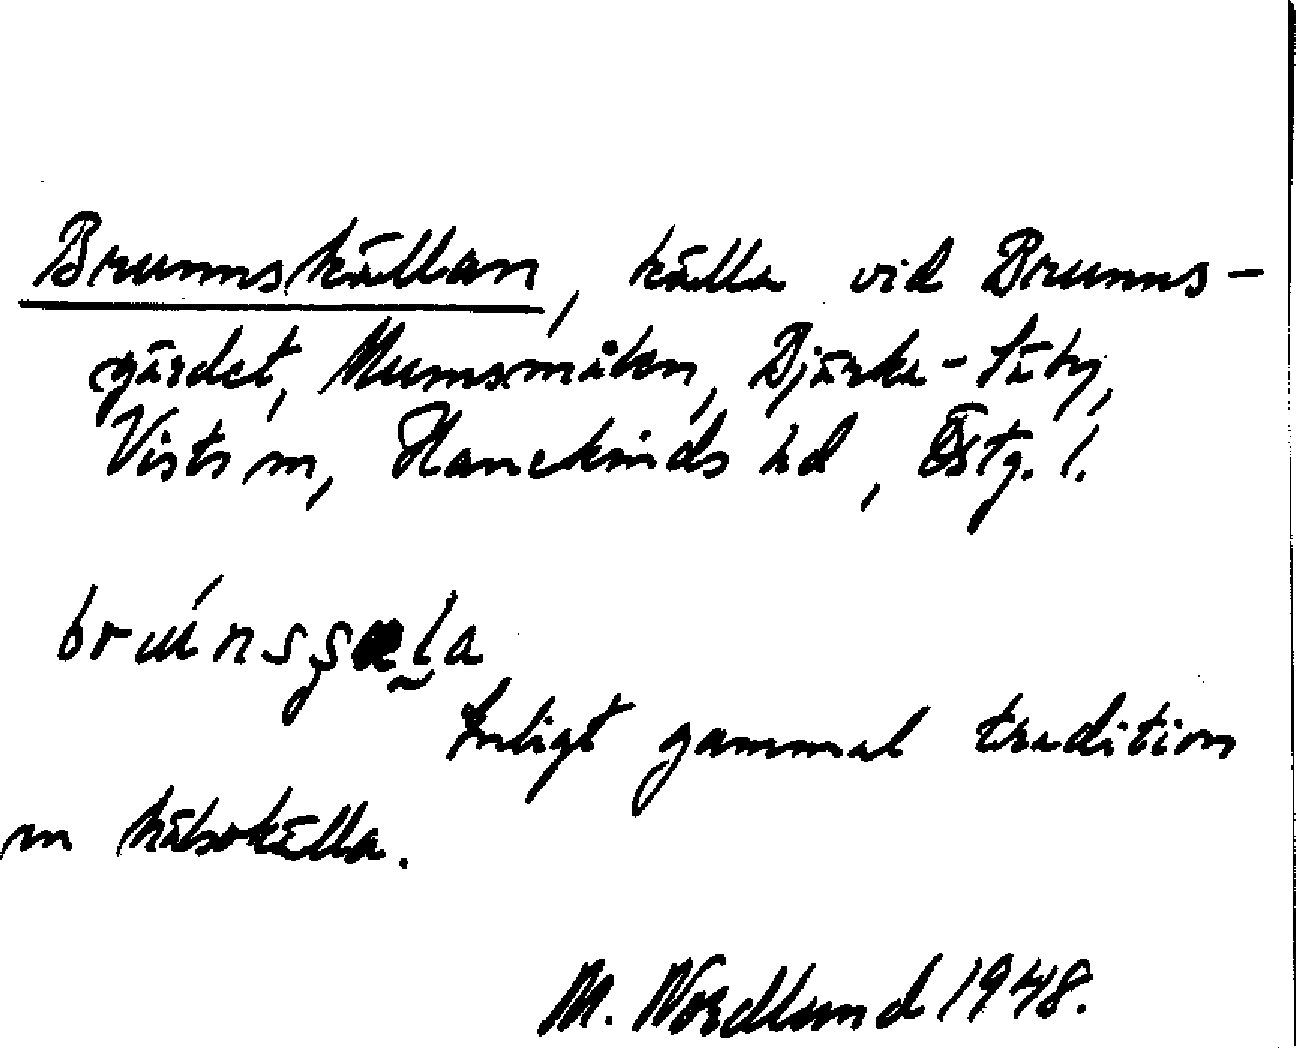 Brunnskällan, källa vid Brunns-
gärdet, Munsmålen, Bjärka-Säby,
Vists sn, Hanekinds hd, Östg. l.
Enligt gammal tradition
en hälsokälla.
M. Nordlund 1948.